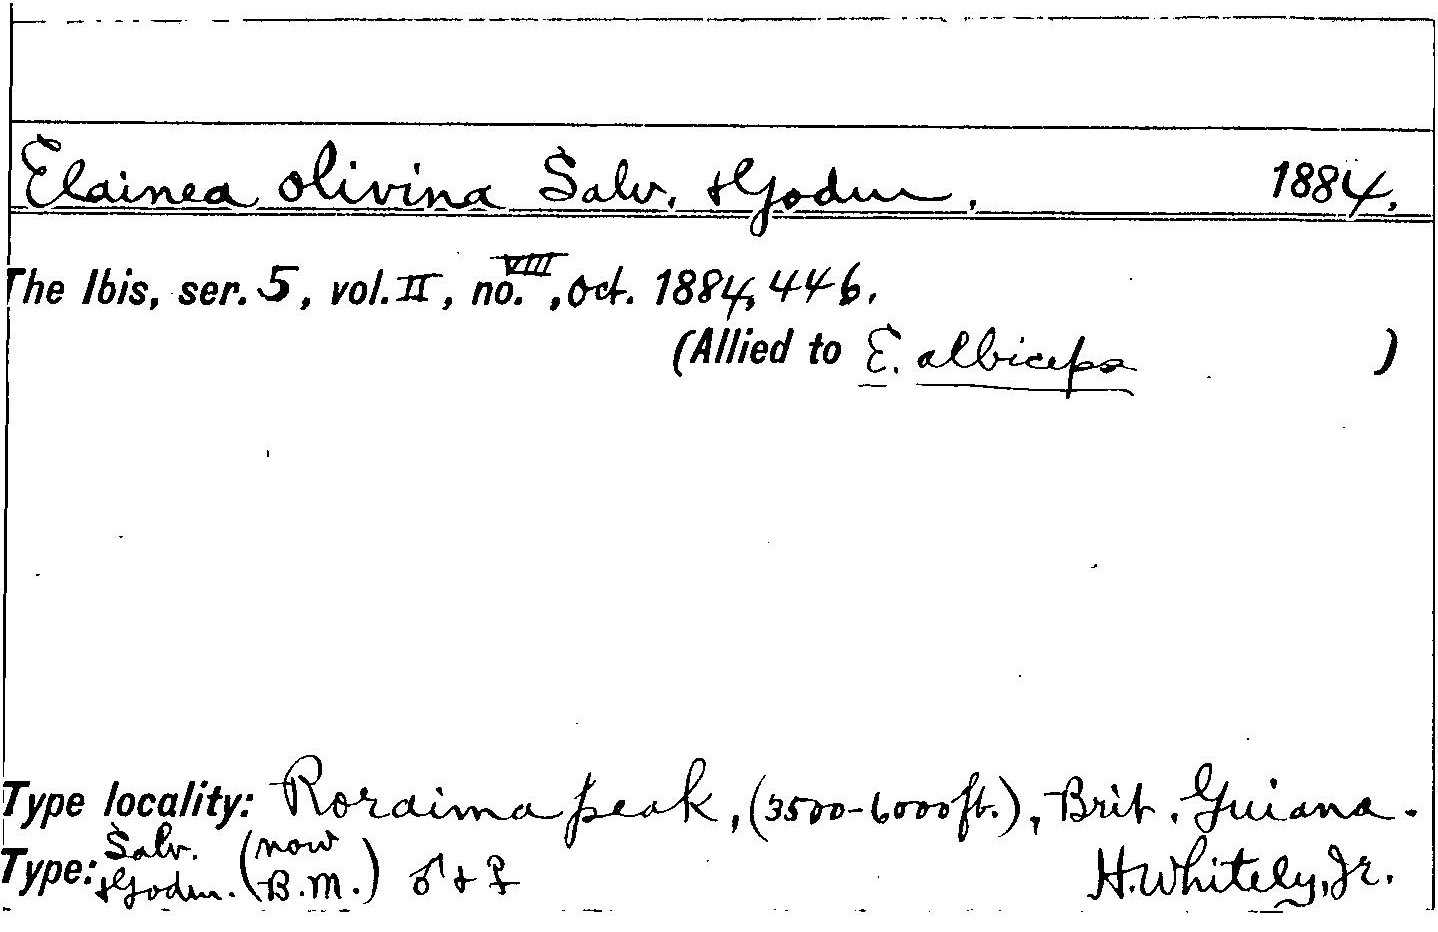 Elainea olivina Salv. & Godm. 1884.
The Ibis, ser. 5, vol. II, no. VIII, Oct. 1884, 446.
(Allied to E. albiceps )
Type locality: Roraima peak, (3500-6000 ft.), Brit. Guiana.
Type: Salv. & Godm. (now B.M.) ♂ & ♀ H. Whitely, Jr.